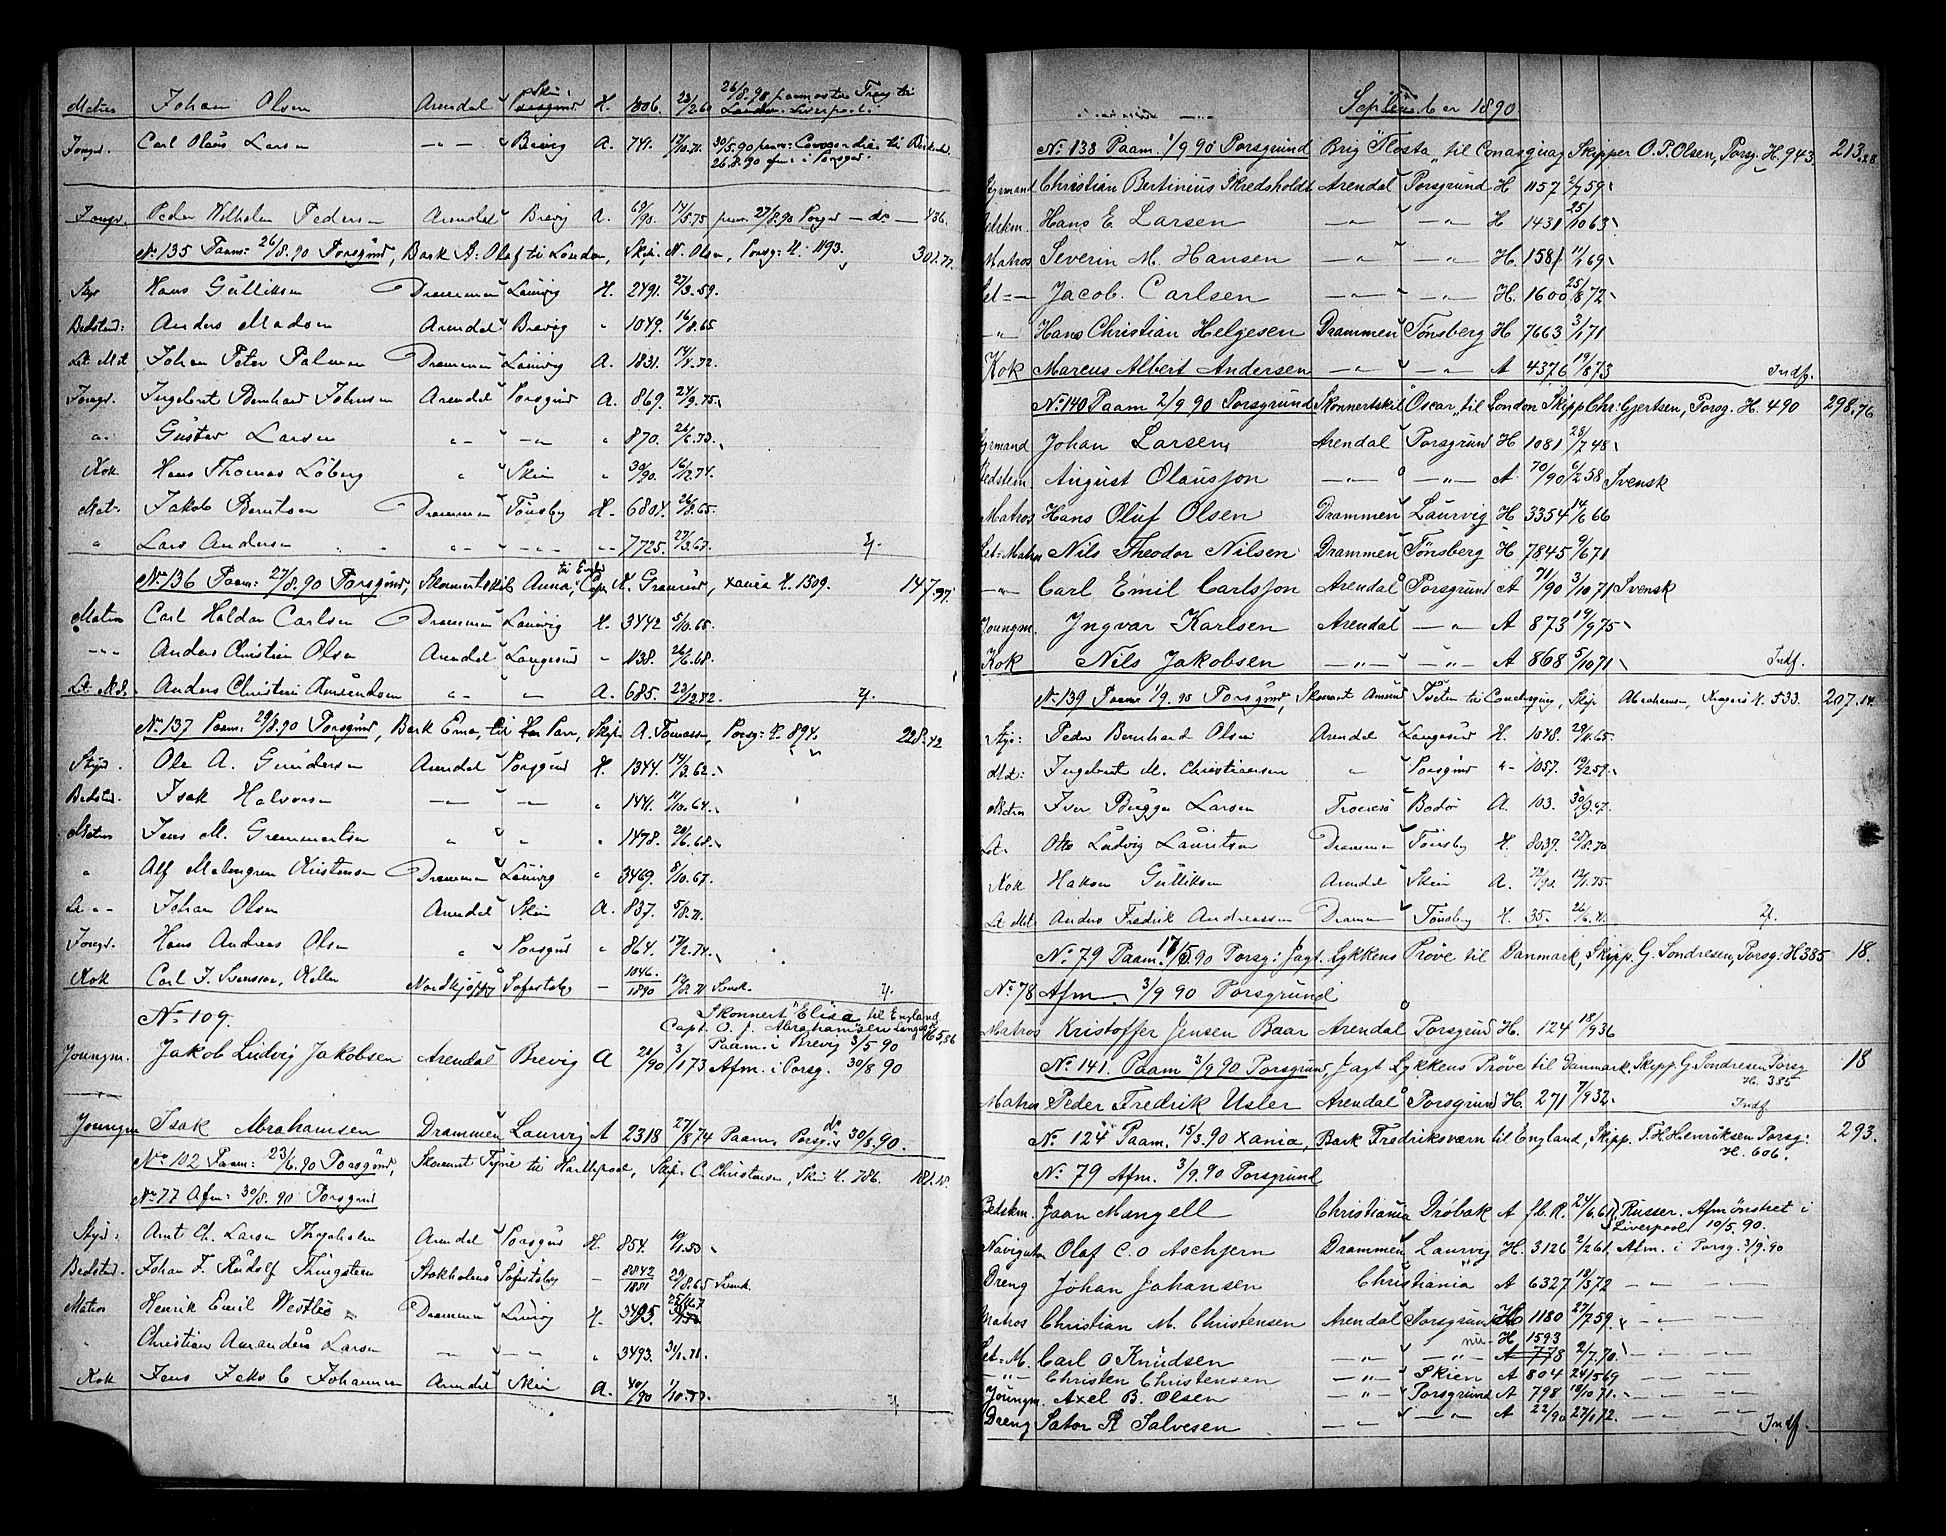 Matros Johan Olsen Arendal Skien Porsgrund H. 1806. 26/8.90 paamönstr Fray til London Liverpool.
Jongm. Carl Olaus Larsen — „ — Brevig A. 741. 17/10.71. 30/5.90 paam:
26.8.90 afm: i Porsgr.
Jongm. Peder Wilhelm Pedersen Arendal Brevig A. 69/90. 14/5.75 paam. 27/8.90 Porsgr — do — 436.
No 135 Paam: 26/8.90 Porsgrund, Bark St: Olaf til London, Skip. N. Olsen, Porsg: H. 1193. 301.77.
Styr Hans Gulliksen Drammen Laurvig H. 2491. 27/3.59.
Bedstmd: Anders Madsen Arendal Brevig „ 1049. 16/8.65
Lt. Mt Johan Peter Palmen Drammen Laurvig A. 1831. 14/4.72.
Jongm. Ingebret Bernhard Johnsen Arendal Porsgrund A. 869. 24/9.75.
„ Gustav Larsen „ - „ — „ — „ 870. 26/6.73.
Kok Hans Thomas Löberg „ Skien „ 30/90. 16/12.74.
Mat: Jakob Berntsen Drammen Tönsbg H. 6804. 26/8.65.
„ Lars Andersen „ - „ — „ — „ 7725. 27/3.67. If.
No 136 Paam: 27/8.90 Porsgrund, Skonnertskib Anna, til England Capt. N. Gramsund, xania H. 1509. 147.97.
Matros Carl Haldor Carlsen Drammen Laurvig H. 3442 5/10.65.
— „ — Anders Christian Olsen Arendal Langesund „ 1138. 26/6.68.
Lt. Md. Anders Christian Amundsen „ - „ „ A. 685. 23/12.82. If.
No 137 Paam: 29/8.90 Porsgrund, Bark Ema, til Skip. A. Tomassen, Porsg: H. 894. 228.42
Styrd. Ole A. Gundersen Arendal Porsgrund H. 1344. 14/3.62.
Bedstd. Isak Halvorsen — „ — — „ — „ 1441. 11/10.64.
Matros Jens M. Gremmertsen „ „ „ 1478. 28/6.68.
„ Alf Malmgren Kristensen Drammen Laurvig „ 3469. 8/10.67.
Lt „ - Johan Olsen Arendal Skien A. 837. 5/8.71.
Jongd. Hans Andreas Olsen „ Porsgrd „ 864. 17/2.74.
Kok Carl J. Svensson, Keller Nordkjöping Söfartsbg — 1046/1890 19/8.71 Svensk. If.
No 109. Skonnert "Elisa til England
Capt. O. J. Abrahamsen Langesd 165,56
Paam. i Brevig 3/5 90
Youngm. Jakob Ludvig Jakobsen Arendal Brevig A 28/90 3/1 73 Afm. i Porsg. 30/8 90
Youngm Isak Abrahamsen Drammen Laurvig A 2318 27/8 74 Paam. Porsg: do 30/8.90.
No 102 Paam: 23/6.90 Porsgrund, Skonnert Tyne til Hartlepool, Skip. C. Christensen, Skien H. 786. 181.15.
No 77 Afm: 30/8.90 Porsgrund
Styrd: Arnt Ch. Larsen Arendal Porsgrd H. 854. 19/1.53
Bedstmd. Johan F. Rudolf Thingsteen Stokholms Söfartsbg — 8842/1881 29/8.65 Svensk.
Matros Henrik Emil Westbö Drammen Laurvig H. 3495.
„ Christian Amandus Larsen — „ — — „ — „ 3493. 31/1.71.
Kok Jens Jakob Johannesen Arendal Skien A. 40/90 1/10.73. If.
September 1890.
No 138 Paam. 1/9 90 Porsgrund Brig "Flosta" til Conasquay Skipper O. P. Olsen, Porsg. H. 943. 213.28
Styrmand Christian Bertinius Skredsholdt Arendal Porsgrund H 1157 2/7 59.
Bedstm. Hans E. Larsen — „ — — „ — H 1431 25/10 63.
Matros Severin M. Hansen — „ — — „ — H. 1581 11/1 69.
Let = — Jacob. Carlsen — „ — — „ — H. 1600 25/8 72.
— „ Hans Christian Helgesen Drammen Tønsberg H 7663 3/1 71
Kok Marcus Albert Andersen — „ — — „ — A 4376 19/8 73 Indf.
No 140 Paam 2/9 90 Porsgrund Skonnertskib Oscar, til London Skipp Chr: Gjertsen, Porsg. H. 490 298.76
Styrmand Johan Larsen, Arendal Porsgrund H 1081 28/7 48.
Bedstem. August Olausson — „ — — „ — A 70/90 6/2 58 Svensk
Matros Hans Oluf Olsen Drammen Laurvig H 3354 14/6 66
Let = Matros Nils Theodor Nilsen Drammen Tønsberg H 7845 9/6 71
— „ — Carl Emil Carlsson Arendal Porsgrund A 71/90 3/10 71 Svensk
Youngm. Ingvar Karlsen Arendal — „ — A 873 19/9 75
Kok Nils Jakobsen — „ — — „ — A 868 5/10 71 Indf.
No 139 Paam 1/9.90 Porsgrund, Skonnert Amund Tveten til Skip Abrahamsen, Kragerö H. 533. 207.14
Styr: Peder Bernhard Olsen Arendal Langesund H. 1048. 28/11.65.
Md: Ingebret M. Christiansen „ Porsgrund „ 1057. 19/2 59.
Matros Iver Brygga Larsen Tromsö Bodö A. 103. 30/9.67.
Lt. Otto Ludvig Lauritsen Drammen Tönsbg H. 8039. 28/8.70
Kok Hakon Gulliksen Arendal Skien A. 72/90. 12/1.75.
Lt Mt. Anders Fredrik Andreassen Drammen Tönsbg H. 35. 26/6.71. If.
No 79 Paam. 17/5.90 Porsg: Jagt Lykkens Prøve til Danmark, Skipp. G. Sondresen, Porsg: H 385 18.
No 78 Afm. 3/9 90 Porsgrund
Matros Kristoffer Jensen Baar Arendal Porsgrund H. 124 18/9 36
No 141. Paam 3/9 90 Porsgrund, Jagt Lykkens Prøve til Danmark. Skipp. G. Sondresen Porsg 18
H. 385
Matros Peder Fredrik Usler Arendal Porsgrund H. 271 7/9 32. Indf
No 124 Paam. 15/3.90 xania, Bark Fredriksværn til England, Skipp. T. H. Henriksen Porsg: 293.
H. 606.
No 79 Afm. 3/9.90 Porsgrund
Bedstm. Jaan Mangell Christiania Drøbak A f.b.R. 24/6.61 Russer. Afmønstret i
Liverpool 10/5 90.
Navigatør Olaf C. O Aschjem Drammen Laurvig H. 3126 2/2 61. Afm. i Porsg. 3/9.90
Dreng Johan Johansen Christiania A 6327 18/3 72 — „ — — „ —
Matros Christian M. Christensen Arendal Porsgrund H 1180 27/7 59. — „ — — „ —
nu - H 1593
Let = M. Carl O Knudsen — „ — — „ — A 778 2/7.70. — „ — — „ —
— „ — Christen Christensen — „ — Skien A 804 24/5 69 — „ — — „ —
Youngm. Axel B. Olsen — „ Porsgrund A 798 18/10 71. — „ — — „ —
Dreng Sator R Salvesen — „ — — „ — A 22/90 27/1 72. — „ — — „ — Indf.